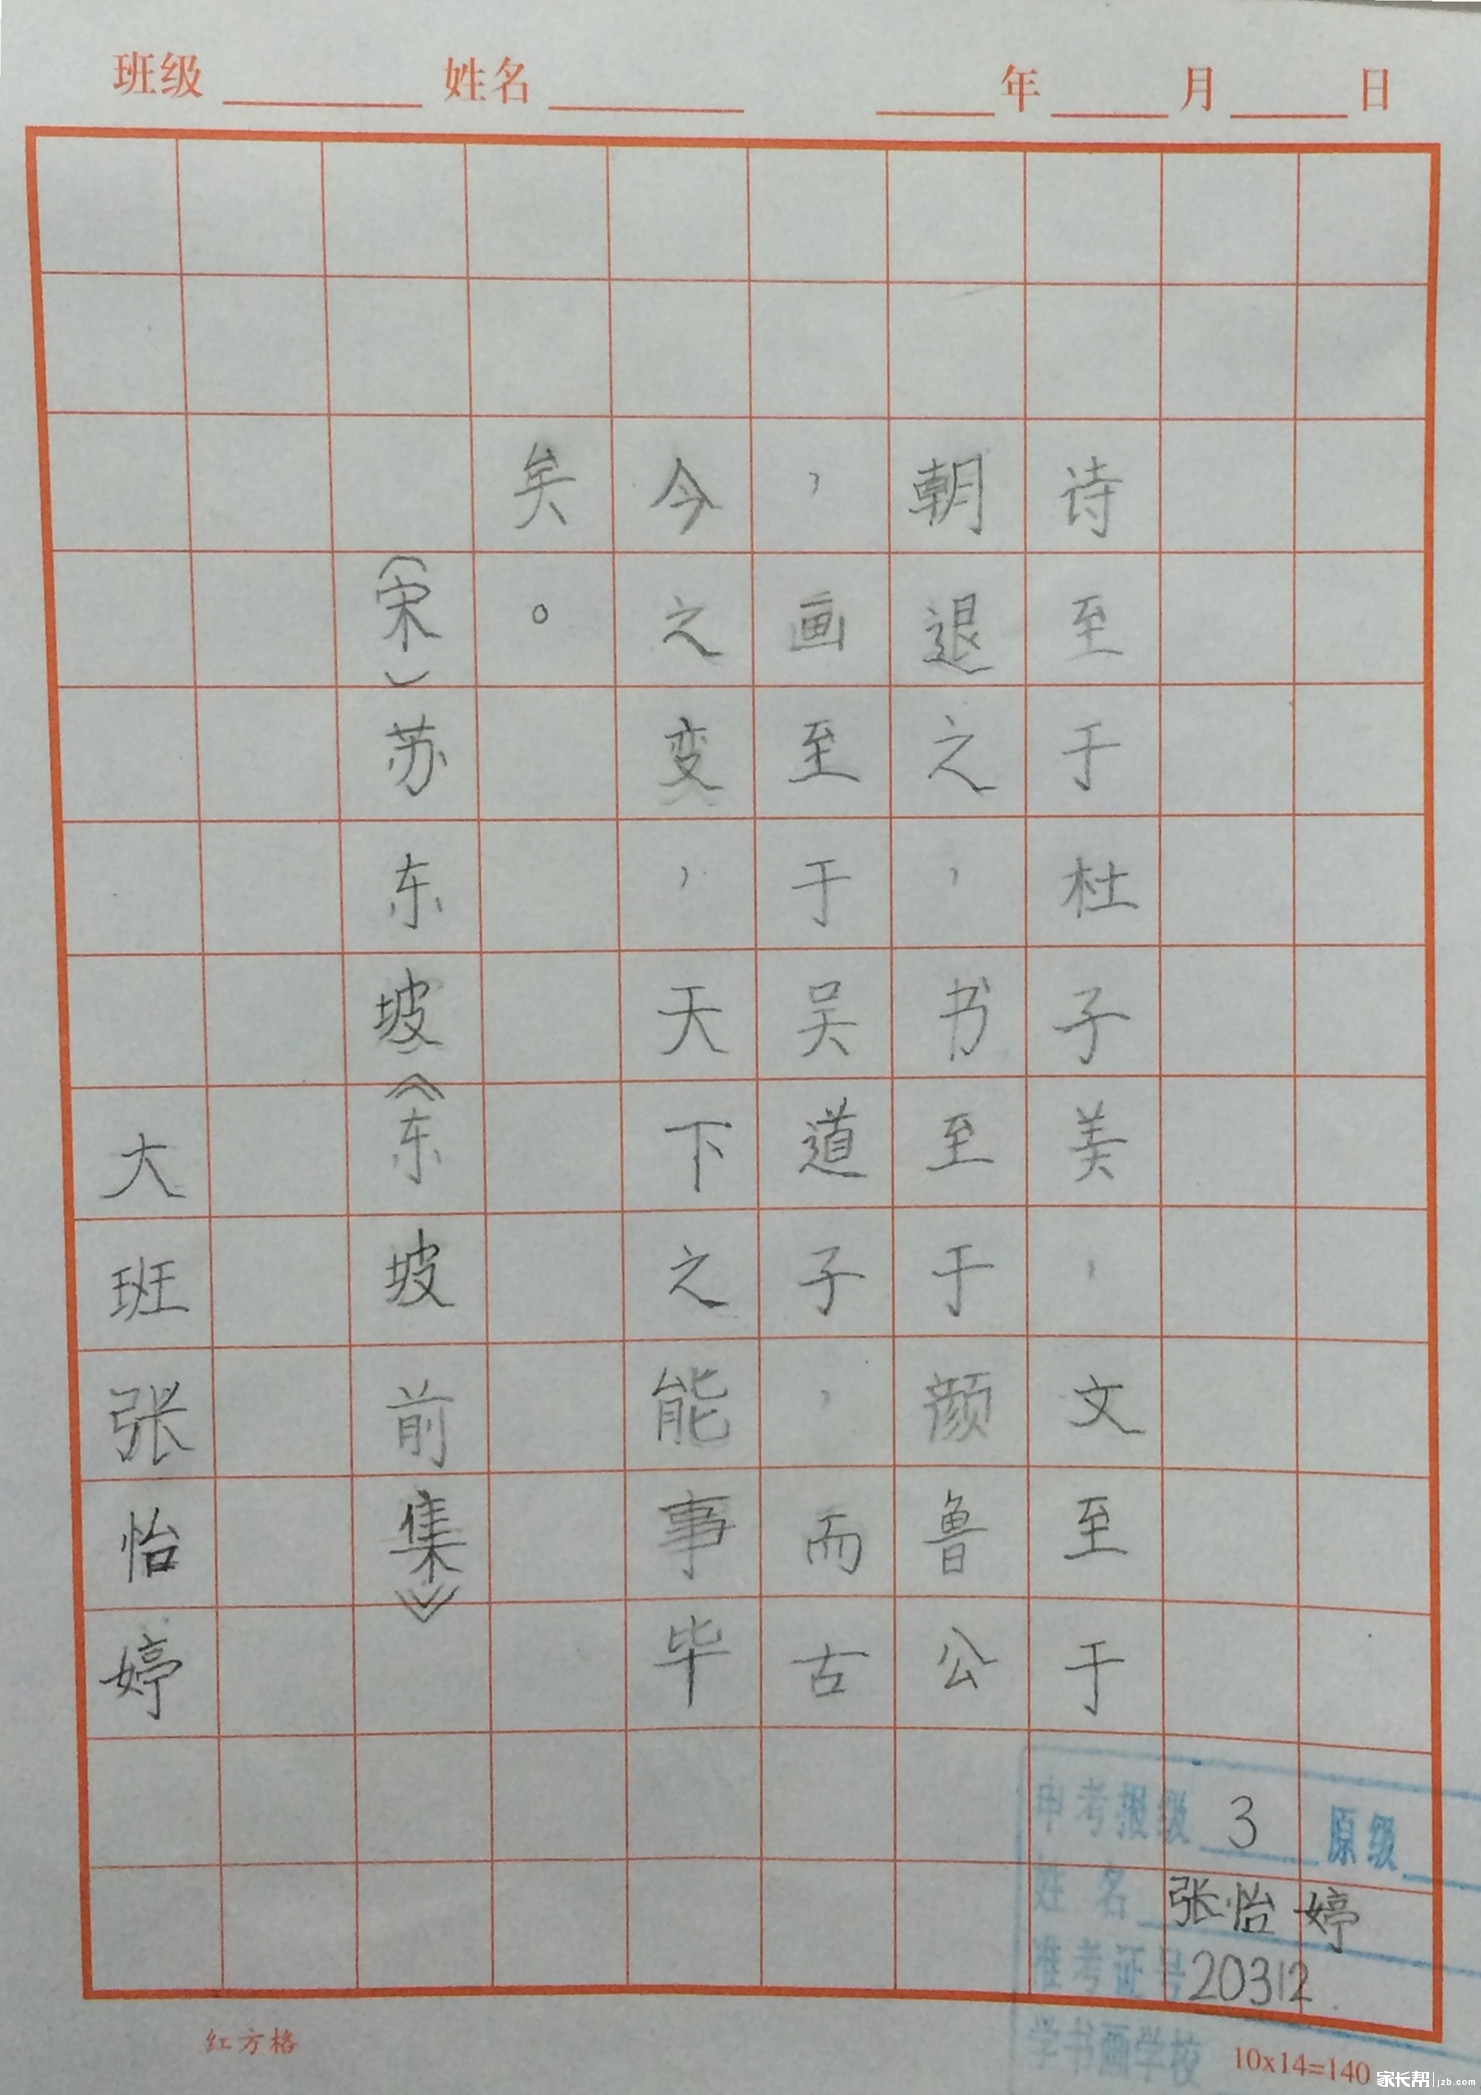 班级 姓名 年 月 日
诗至于杜子美，文至于
朝退之，书至于颜鲁公
，画至于吴道子，而古
今之变，天下之能事毕
矣。
（宋）苏东坡《东坡前集》
大班张怡婷
申考报级 3 原级
姓名 张怡婷
准考证号 20312
学书画学校
红方格
10x14=140
家长帮 jzb.com